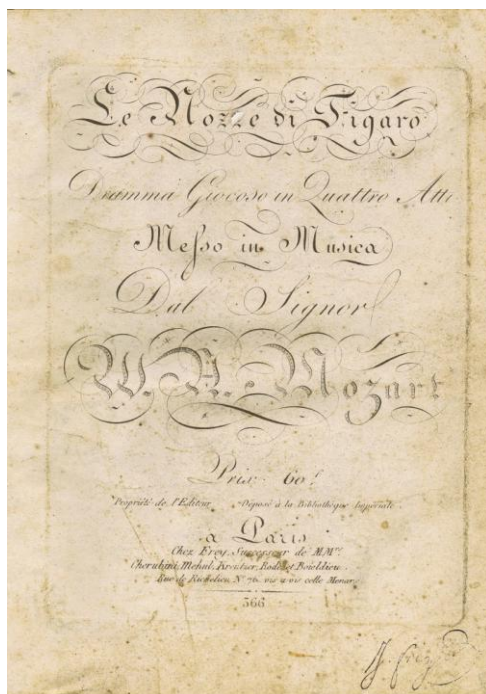 Le Nozze di Figaro
Dramma Giocoso in Quattro Atti
Messo in Musica
Dal Signor
W. A. Mozart
Prix 60f
Propriété de l'Editeur. Déposé à la Bibliothèque Impériale.
a Paris
Chez Frey, Successeur de MM.rs
Cherubini, Mehul, Kreutzer, Rode et Boieldieu
Rue de Richelieu, N° 76. vis a vis celle Menars
566